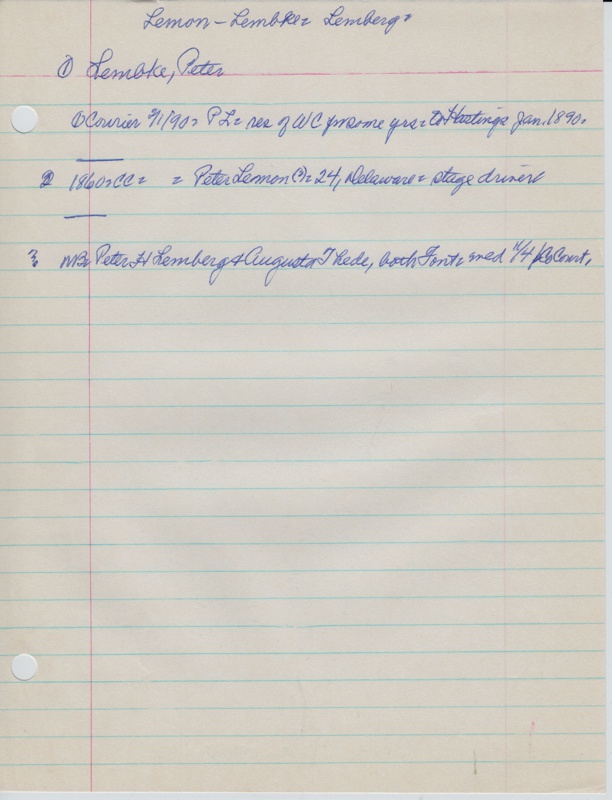 Lemon - Lembke = Lemberg =
① Lembke, Peter
① Courier 2/1/90 = P L = res of WC for some yrs = to Hastings Jan. 1890.
2 1860 = CC = = Peter Lemon (?) = 24, Delaware = stage driver
3 MB = Peter H Lemberg & Augusta Thede, both Font = med 11/4 Court.